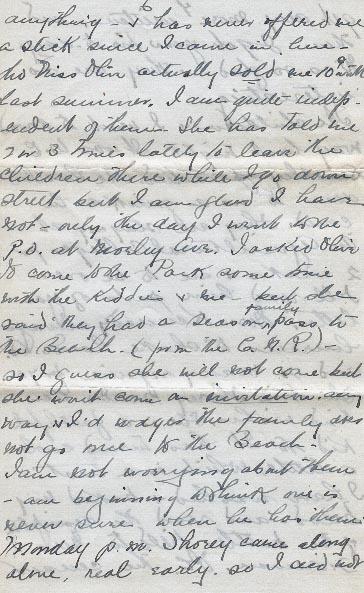 anything & has never offered me
a stick since I came in here -
tho Miss Olive actually sold me 10¢ worth
last summer. I am quite indep-
endent of them. She has told me
2 or 3 times lately to leave the
children there while I go down
street but I am glad I have
not - only the day I went to the
P.O. at Morley Ave. I asked Olive
to come to the Park some time
with the Kiddies & me - but she
said they had a season family pass to
the Beach. (from the C.N.R.) -
so I guess she will not come but
she won't come on invitation any
way, & I'd wager the family does
not go once to the Beach.
I am not worrying about them
- am beginning to think one is
never sure when he has them.
Monday p.m. came along
alone, real early. So I did not